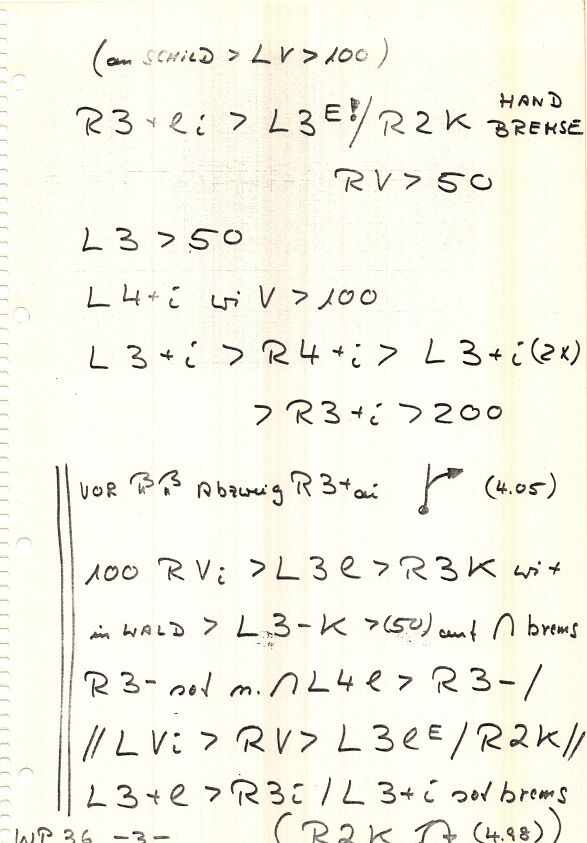 (an SCHILD > LV > 100)
R3+li > L3E!/R2K HAND BREMSE
RV > 50
L3 > 50
L4+i wi V > 100
L3+i > R4+i > L3+i (2x)
> R3+i > 200
VOR Abzweig R3+ai (4.05)
100 RVi > L3l > R3K wi+
in WALD > L3-K > (50) auf ∩ brems
R3- sof n. ∩ L4l > R3-/
//LVi > RV > L3lE/R2K//
L3+l > R3i / L3+i sof brems
WP 36 -3- (R2K (4.98))